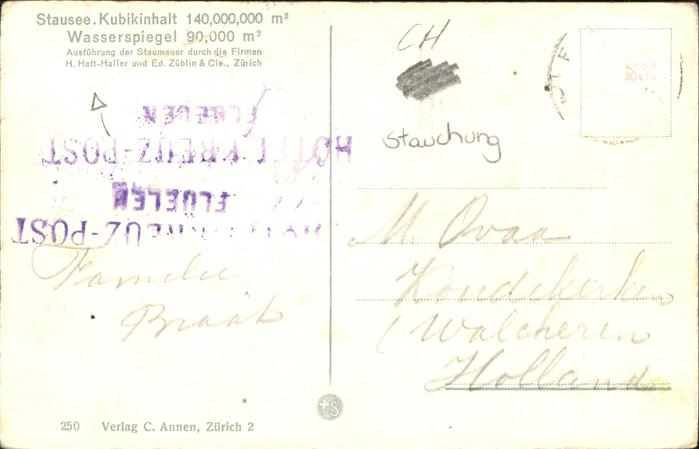 Stausee. Kubikinhalt 140,000,000 m³
Wasserspiegel 90,000 m²
Ausführung der Staumauer durch die Firmen
H. Hatt-Haller und Ed. Züblin & Cie., Zürich
FLUELEN
HOTEL KREUZ-POST
FLÜELEN
HOTEL KREUZ-POST
Familie
Braat
CH
Stauchung
M. Ovaa
Koudekerke
(Walcheren
Holland
250 Verlag C. Annen, Zürich 2